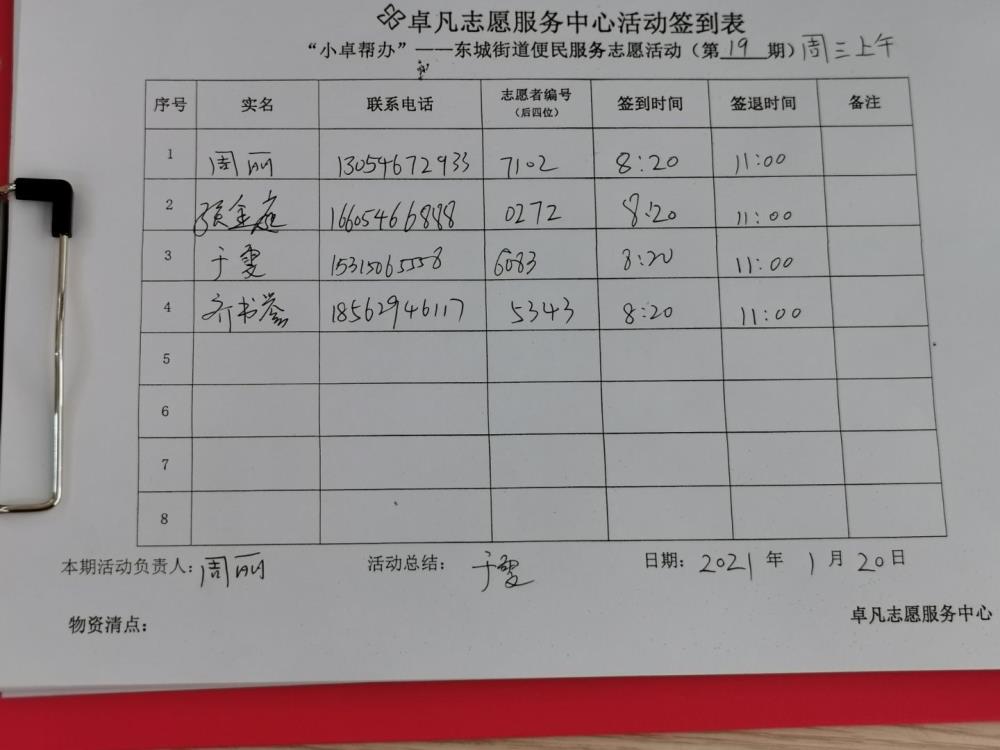 卓凡志愿服务中心活动签到表
“小卓帮办”——东城街道便民服务志愿活动（第19期）周三上午
序号 实名 联系电话 志愿者编号（后四位） 签到时间 签退时间 备注
1 周丽 13054672933 7102 8:20 11:00
2 张金庭 16605466888 0272 8:20 11:00
3 于雯 15315065558 6083 8:20 11:00
4 齐书誉 18562946117 5343 8:20 11:00
5
6
7
8
本期活动负责人：周丽 活动总结：于雯 日期：2021年1月20日
物资清点：
卓凡志愿服务中心